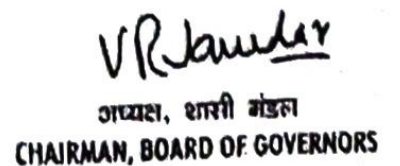 अध्यक्ष, शासी मंडल
CHAIRMAN, BOARD OF GOVERNORS